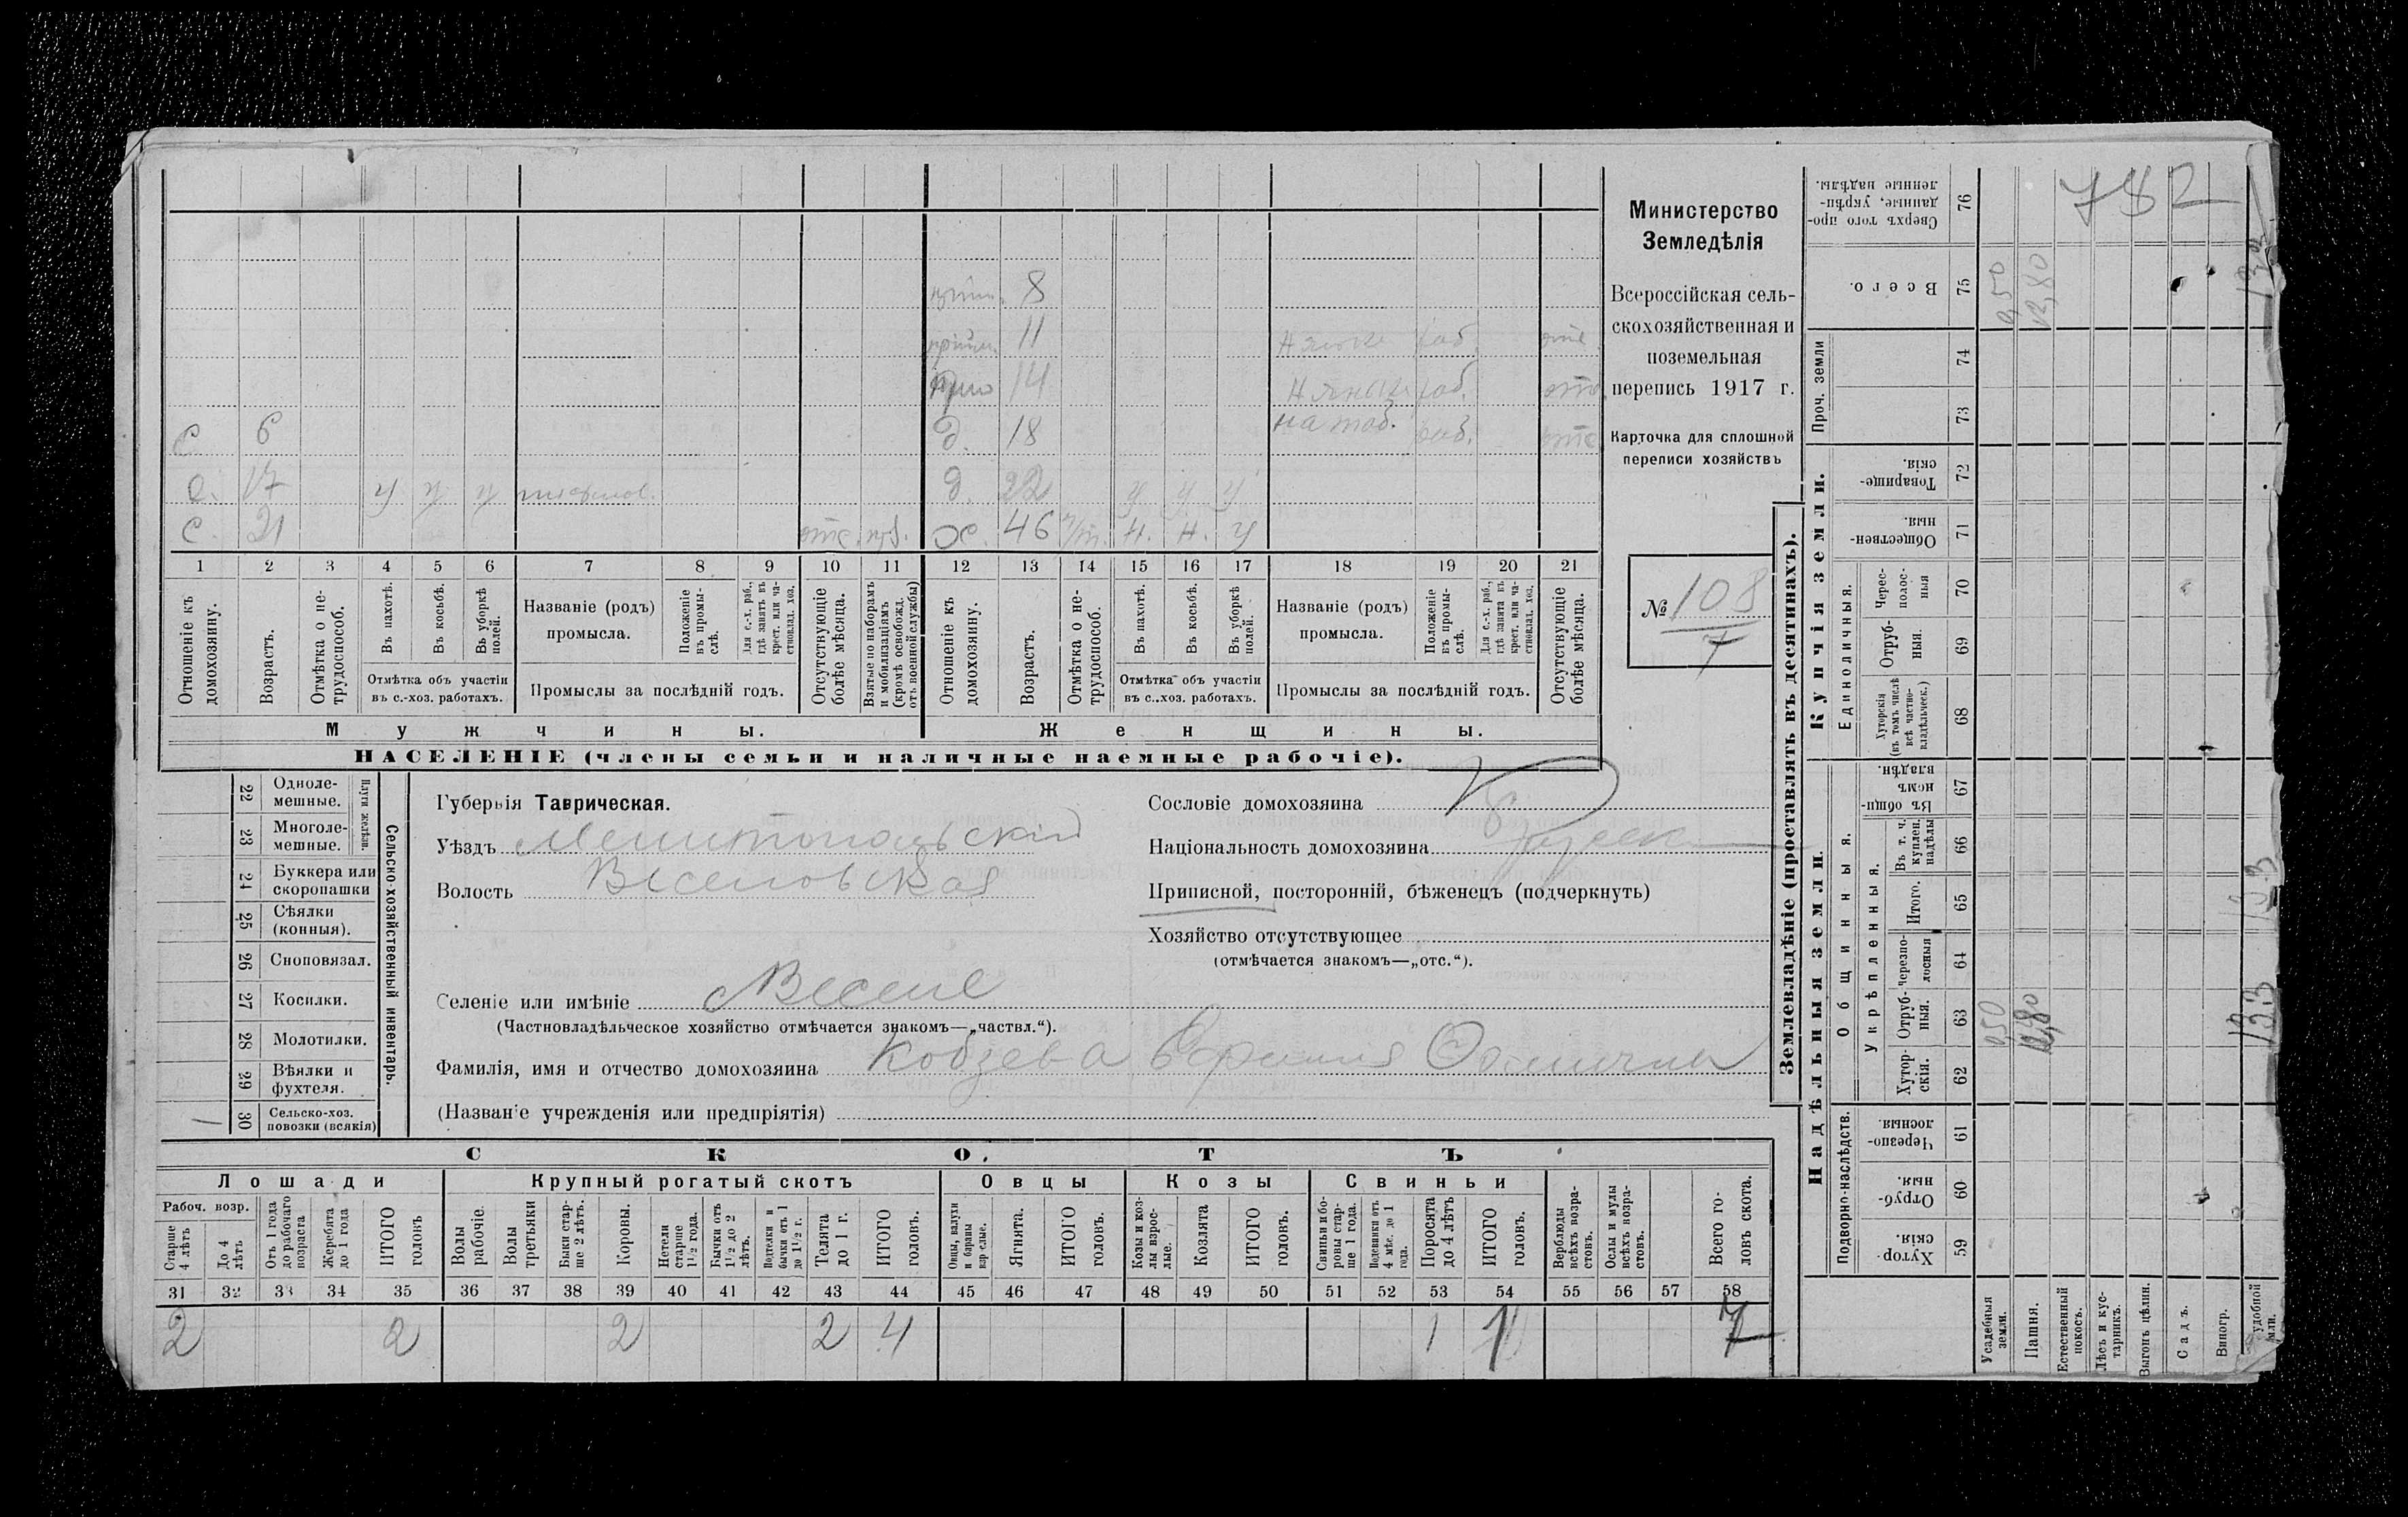 прийм. 8
прийм. 11 няньк. раб. отс.
14 няньк. раб. отс.
с 6 д. 18 на таб. раб. отс.
с. 17 у у у д. 22 у у у
с. 21 отс. х. 46 п/т. н. н. у
1 2 3 4 5 6 7 8 9 10 11 12 13 14 15 16 17 18 19 20 21
Отношеніе къ домохозяину.
Возрастъ.
Отмѣтка о нетрудоспособ.
Въ пахотѣ.
Въ косьбѣ.
Въ уборкѣ полей.
Отмѣтка объ участіи
въ с.-хоз. работахъ.
Названіе (родъ)
промысла.
Положеніе въ промыслѣ.
Для с.-х. раб., гдѣ занятъ въ крест. или частновлад. хоз.
Промыслы за послѣдній годъ.
Отсутствующіе болѣе мѣсяца.
Взятые по наборамъ и мобилизаціямъ (кромѣ освобожд. отъ военной службы)
Отношеніе къ домохозяину.
Возрастъ.
Отмѣтка о нетрудоспособ.
Въ пахотѣ.
Въ косьбѣ.
Въ уборкѣ полей.
Отмѣтка объ участіи
въ с..хоз. работахъ.
Названіе (родъ)
промысла.
Положеніе въ промыслѣ.
Для с.-х. раб., гдѣ занята въ крест. или частновлад. хоз.
Промыслы за послѣдній годъ.
Отсутствующіе болѣе мѣсяца.
Мужчины.
Женщины.
НАСЕЛЕНІЕ (члены семьи и наличные наемные рабочіе).
Министерство
Земледѣлія
Всероссійская сель-
скохозяйственная и
поземельная
перепись 1917 г.
Карточка для сплошной
переписи хозяйствъ
№ 108
7
22 Одноле-
мешные.
23 Многоле-
мешные.
Плуги желѣзн.
24 Буккера или
скоропашки
25 Сѣялки
(конныя).
26 Сноповязал.
27 Косилки.
28 Молотилки.
29 Вѣялки и
фухтеля.
1 30 Сельско-хоз.
повозки (всякія)
Сельско-хозяйственный инвентарь.
Губернія Таврическая.
Уѣздъ Мелитопольскій
Волость Веселовская
Селеніе или имѣніе Веселе
(Частновладѣльческое хозяйство отмѣчается знакомъ—„частвл.“).
Фамилія, имя и отчество домохозяина Кобзева
(Названіе учрежденія или предпріятія)
Сословіе домохозяина
Національность домохозяина
Приписной, посторонній, бѣженецъ (подчеркнуть)
Хозяйство отсутствующее
(отмѣчается знакомъ—„отс.“).
СКОТЪ
Лошади
Крупный рогатый скотъ
Овцы
Козы
Свиньи
Рабоч. возр.
Старше 4 лѣтъ
До 4 лѣтъ
Отъ 1 года до рабочаго возраста
Жеребята до 1 года
ИТОГО головъ
Волы рабочіе.
Волы третьяки
Быки старше 2 лѣтъ.
Коровы.
Нетели старше 1½ года.
Бычки отъ 1½ до 2 лѣтъ.
Подтелки и бычки отъ 1 до 1½ г.
Телята до 1 г.
ИТОГО головъ.
Овцы, валухи и бараны взрослые.
Ягнята.
ИТОГО головъ.
Козы и козлы взрослые.
Козлята
ИТОГО головъ.
Свиньи и боровы старше 1 года.
Подсвинки отъ 4 мѣс. до 1 года.
Поросята до 4 лѣтъ
ИТОГО головъ.
Верблюды всѣхъ возрастовъ.
Ослы и мулы всѣхъ возрастовъ.
Всего головъ скота.
31 32 33 34 35 36 37 38 39 40 41 42 43 44 45 46 47 48 49 50 51 52 53 54 55 56 57 58
2 2 2 2 4 1 1 7
Землевладѣніе (проставлять въ десятинахъ).
Надѣльныя земли.
Купчія земли.
Проч. земли
Сверхъ того проданные, укрѣпленные надѣлы. 76
Всего. 75
74
73
Товарищескія. 72
Общественныя. 71
Единоличныя.
Чересполосныя 70
Отрубныя. 69
Хуторскія (въ томъ числѣ всѣ частновладѣльческ.) 68
Общинныя.
Въ общинномъ владѣн. 67
Укрѣпленныя.
Въ т. ч. куплен. надѣлы 66
Итого. 65
Черезполосныя 64
Отрубныя. 63
Хуторскія. 62
Подворно-наслѣдств.
Черезполосныя. 61
Отрубныя. 60
Хуторскія. 59
Усадебныя земли.
Пашня.
Естественный покосъ.
Лѣсъ и кустарникъ.
Выгонъ цѣлин.
Садъ.
Виногр.
удобной
0,50
12,80
0,50
12,80
13,3
13,3
782